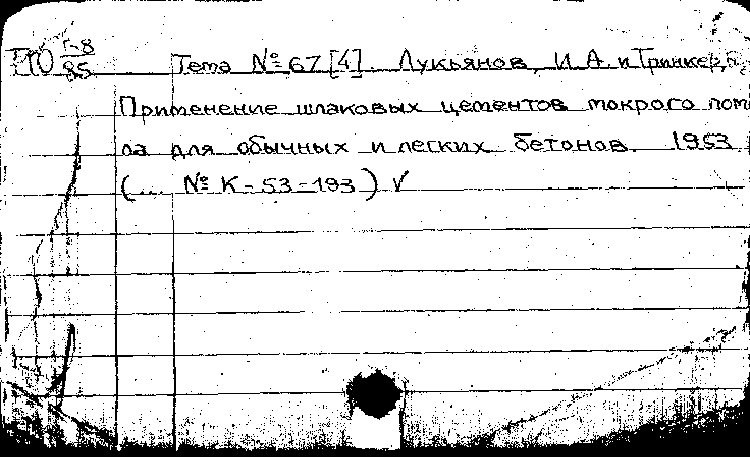 Г-8
85
Тема № 67 [4]. Лукьянов, И.А. и Тринкер,
Применение шлаковых цементов мокрого помо
ла для обычных и легких бетонов. 1953.
(... № К-53-193) V